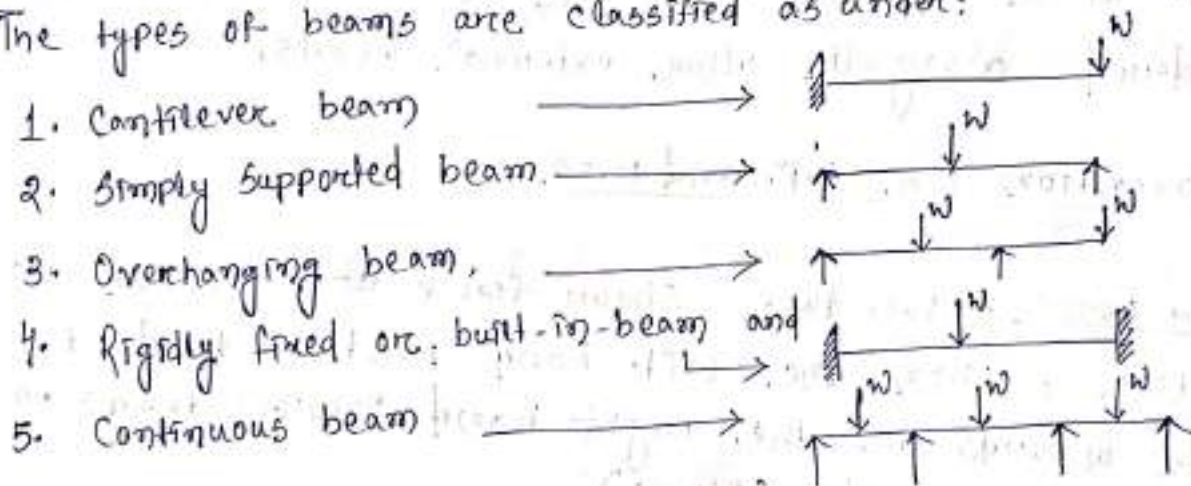 The types of beams are classified as under:
W
1. Cantilever beam
W
2. Simply Supported beam.
W W
3. Overhanging beam.
W
4. Rigidly fixed or built-in-beam and
W W W
5. Continuous beam